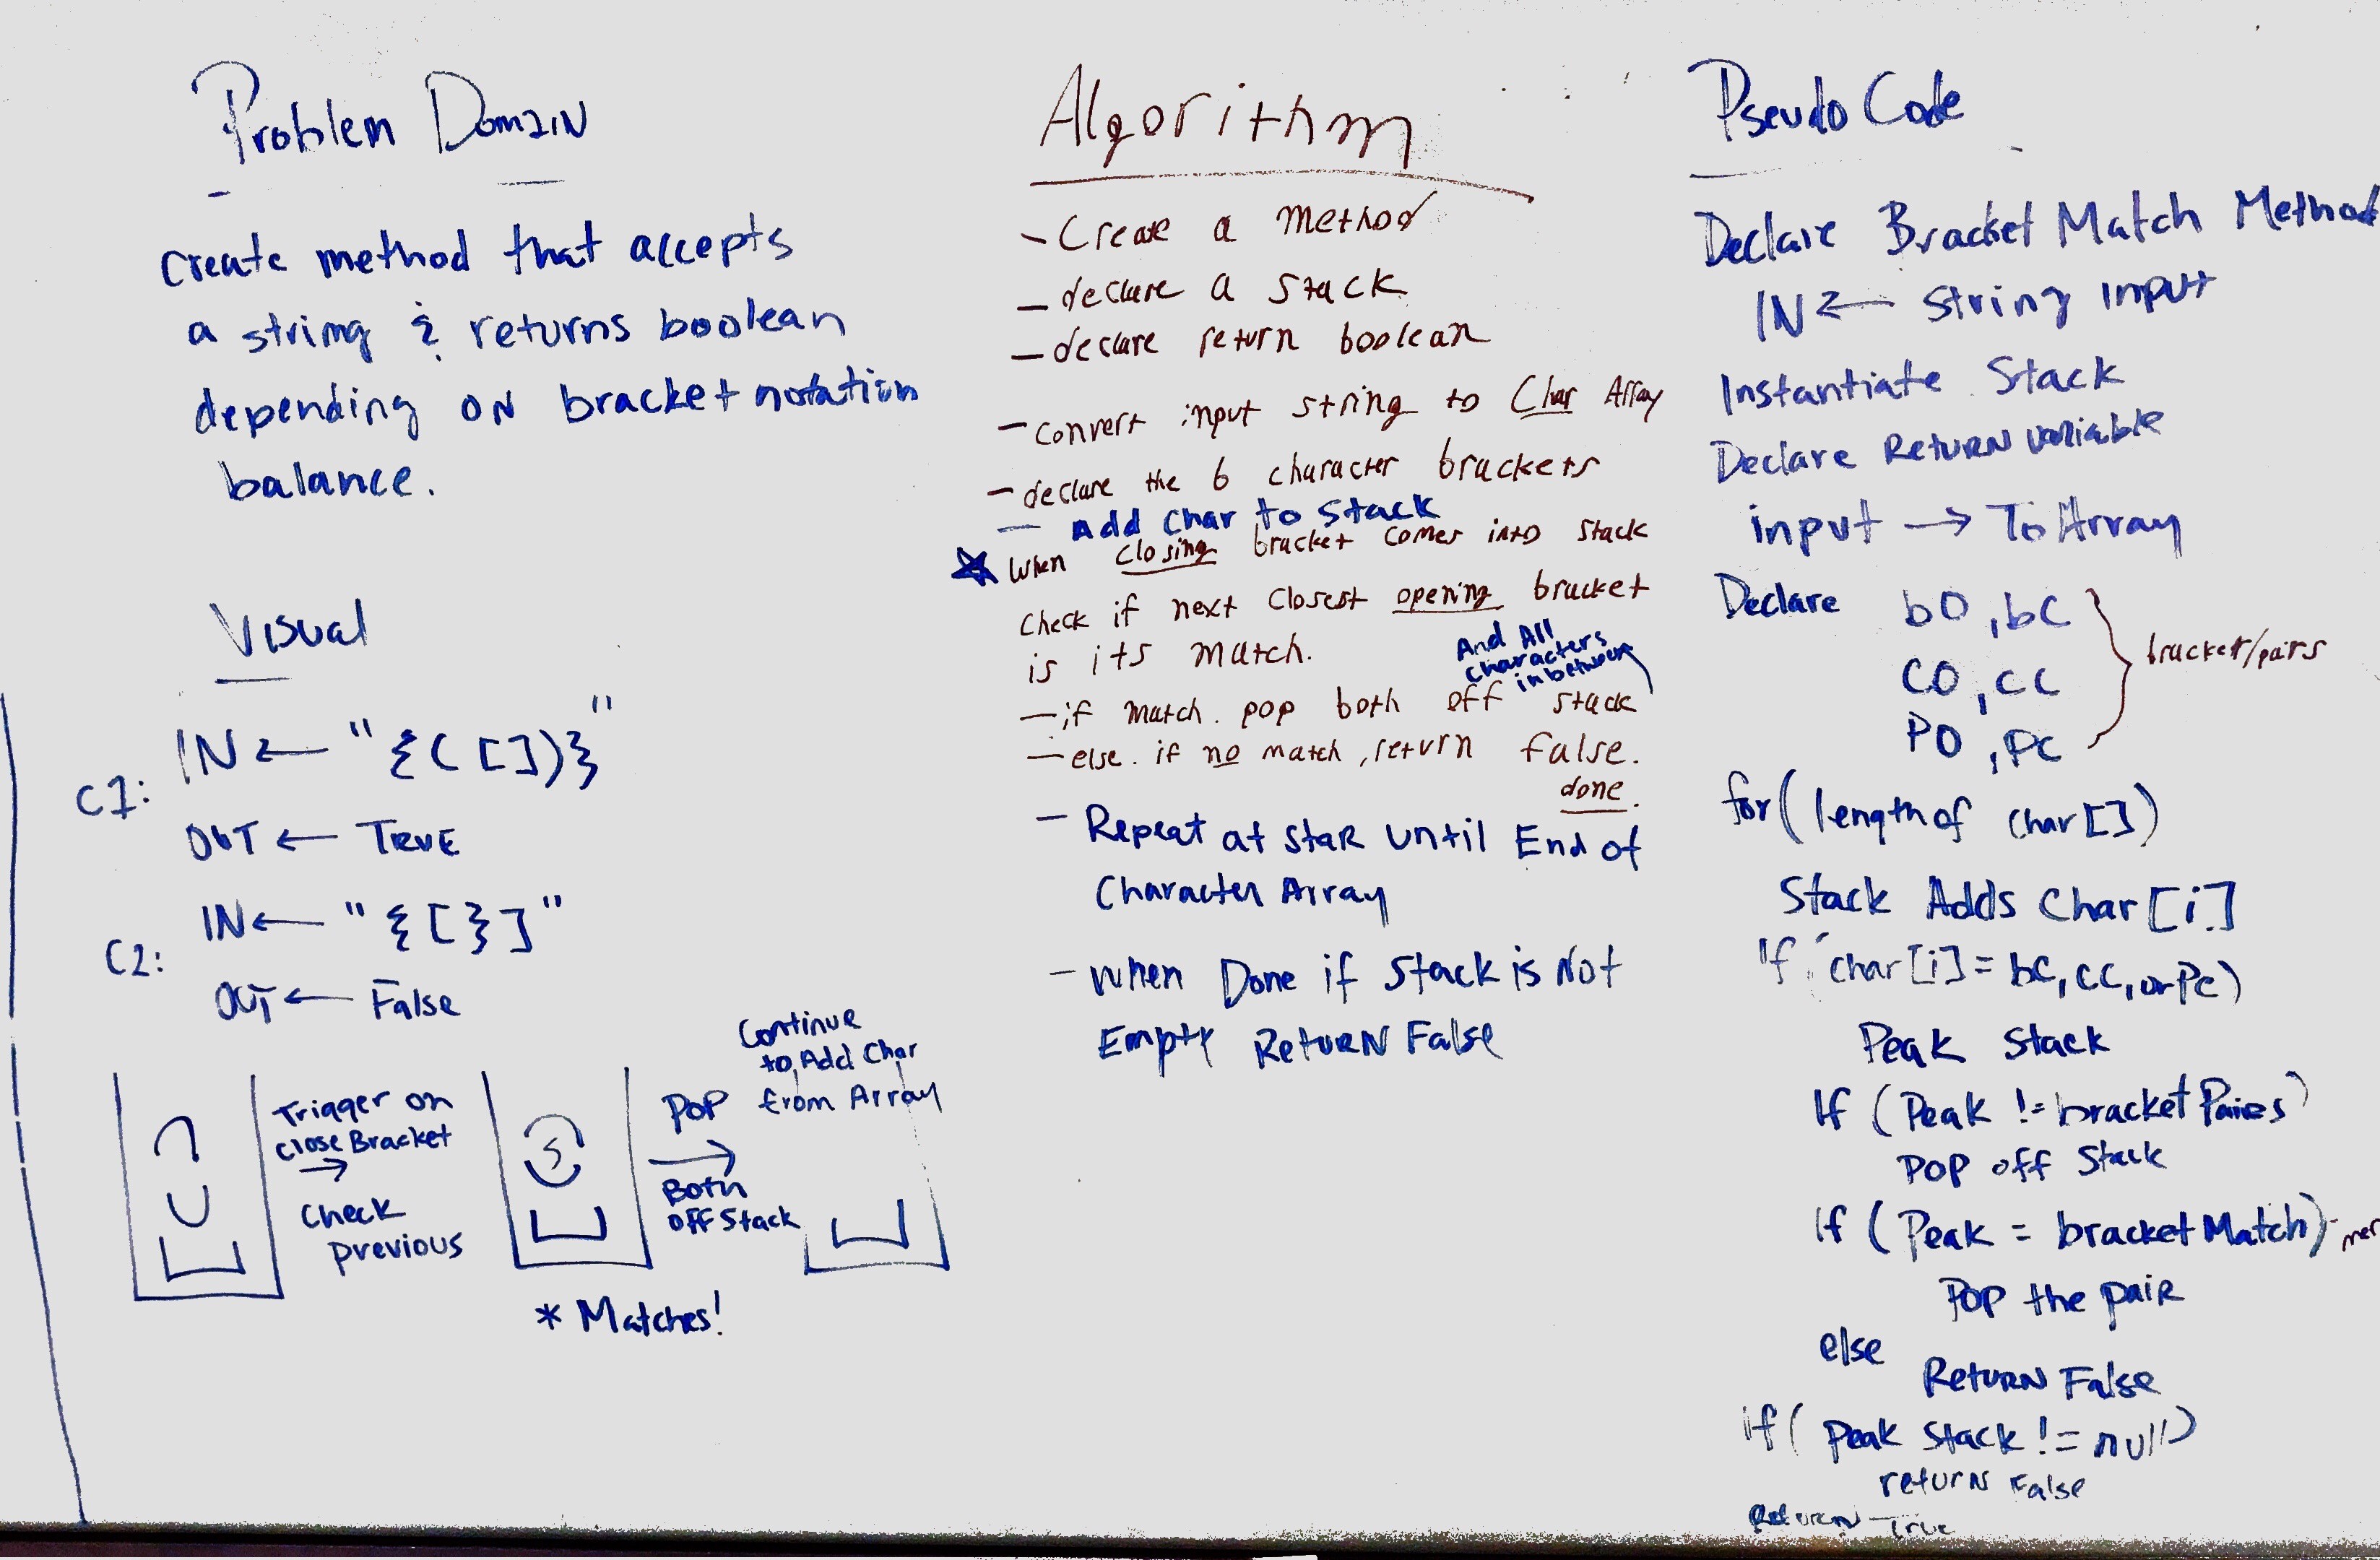 Problem Domain
Create method that accepts
a string & returns boolean
depending on bracket notation
balance.
Visual
C1: IN ← "{([])}"
OUT ← TRUE
C2: IN ← "{[}]"
OUT ← False
Trigger on
close Bracket
→
Check
previous
* Matches!
POP
→
Both
off Stack
Continue
to Add Char
from Array
Algorithm
- Create a method
- declare a stack
- declare return boolean
- convert input string to Char Array
- declare the 6 character brackets
- Add Char to Stack
★ When closing bracket comes into stack
check if next closest opening bracket
is its match.
And All
characters
in between
- if match. pop both off stack
- else. if no match, return false.
done.
- Repeat at star until End of
Character Array
- When Done if Stack is Not
Empty Return False
Pseudo Code
Declare Bracket Match Method
IN ← string input
Instantiate Stack
Declare Return variable
input → To Array
Declare bO, bC
CO, CC
PO, PC
bracket/pairs
for (length of char[])
Stack Adds Char[i]
If char[i] = bC, CC, or PC)
Peak Stack
If (Peak != bracket Paires)
Pop off Stack
If (Peak = bracket Match)
Pop the pair
else
Return False
if (Peak Stack != null)
return False
Return True